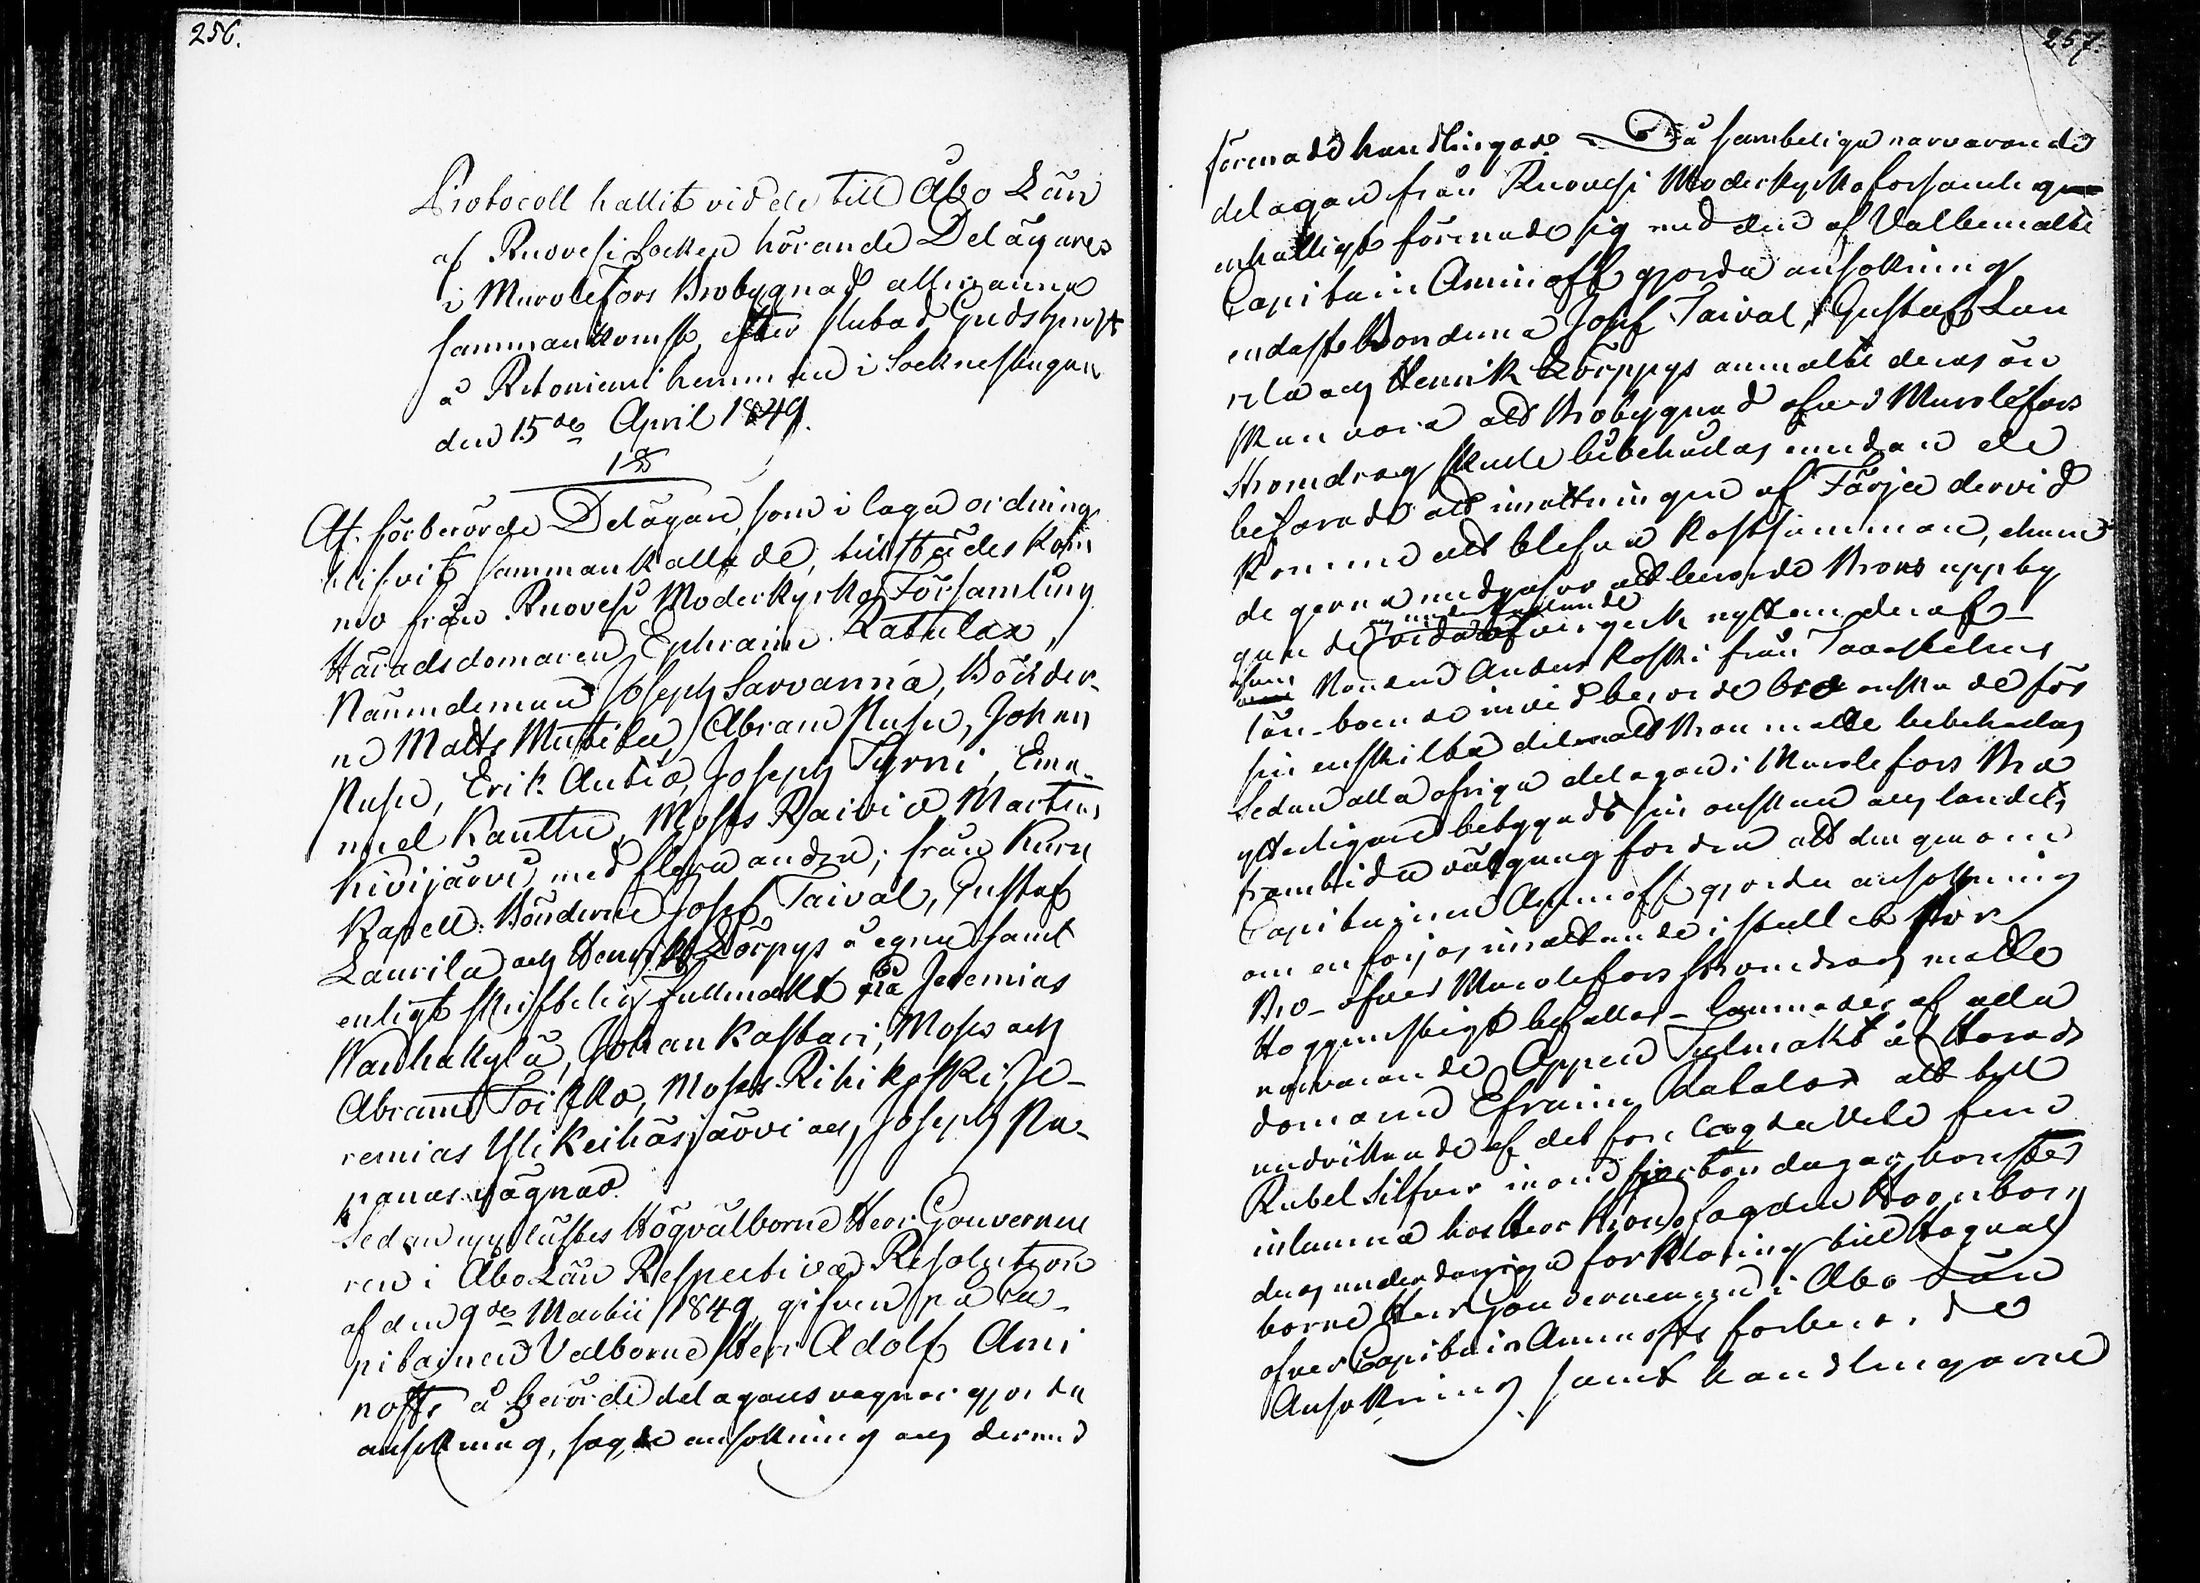 256.
Protocoll hållit vid de till Åbo Län
af Ruovesi Socken hörande Delägares
i Murolefors Brobygnad allmänna
sammankomst, efter slutad Gudstjenst
å Ritoniemi hemman i Socknestugan
den 15de April 1849.
1 §
Af förberörde Delägare, som i laga ordning
blifvit sammankallade, tillstädes kom
mo från Ruovesi Moderkyrko Församling
Häradsdomaren Ephraim Ratulax,
Nämndeman Joseph Sarvanna, Bönder-
ne Matts Muttila, Abram Pusu, Johan
Pusu, Erik Autio, Joseph Tyrni, Ema-
nuel Kauttu, Moses Raivio Martin
Kivijärvi med flera andra; från Kuru
Kapell: Bönderne Josef Taival, Gustaf
Laurila och Henrik Pörpys å egna samt
enligt skriftelig fullmakt på Jeremias
Wanhakylä, Johan Kastari, Moses och
Abram Toikko, Moses Rihikoski, Je-
remias Ylikeihäsjärvi och Joseph Pa-
panas vägnar.
Sedan upplästes Högvälborne Herr Gouverneu
ren i Åbo Län Respective Resolution
af den 9de Martii 1849 gifven på Ca-
pitainen Välborne Herr Adolf Ami
noffs å berörde delägares vägnar gjorda
ansökning, sagde ansökning och dermed
257.
förenade handlingar. Då samtelige närvarande
delägare från Ruovesi Moderkyrkoförsamling
enhälligt förenade sig med den af Välbemälte
Capitain Aminoff gjorda ansökning
endast Bönderna Josef Taival, Gustaf Lau
rila och Henrik Pörppys anmälte deras ön
skan vara att Brobygnad öfver Murolefors
Strömdrag skulle bibehållas emedan de
befarade att inrättningen af Färja dervid
komme att blifva kostsamman, ehuru
de gerna medgåfvo att berörde Brons uppbyg
gande och underhållande vida öfvergick nyttan deraf-
äfven Bonden Anders Koski från Tavastehus
län- boende invid berörde bro önskade för
sin enskilta del att Bron måtte bibehållas
Sedan alla öfriga delägare i Murolefors Bro
ytterligare betygade sin önskan och landets
framtida välgång fordra att den genom
Capitainen Aminoff gjorda ansökning
om en färjas inrättande i stället för
Bro- öfver Murolefors Strömdrag måtte
Höggunstigt befallas- lemnades af alla
närvarande Öppen Fullmakt åt Härads
domaren Efraim Ratalax att till
undvikande af det före lagda vite fem
Rubel Silfver inom fjorton dagar härefter
inlemna hos Herr Kronofogden Hornborg
deras underdåniga förklaring till Högväl
borne Herr Gouverneuren i Åbo Län
öfver Capitain Aminoffs förberörde
Ansökning samt handlingarne